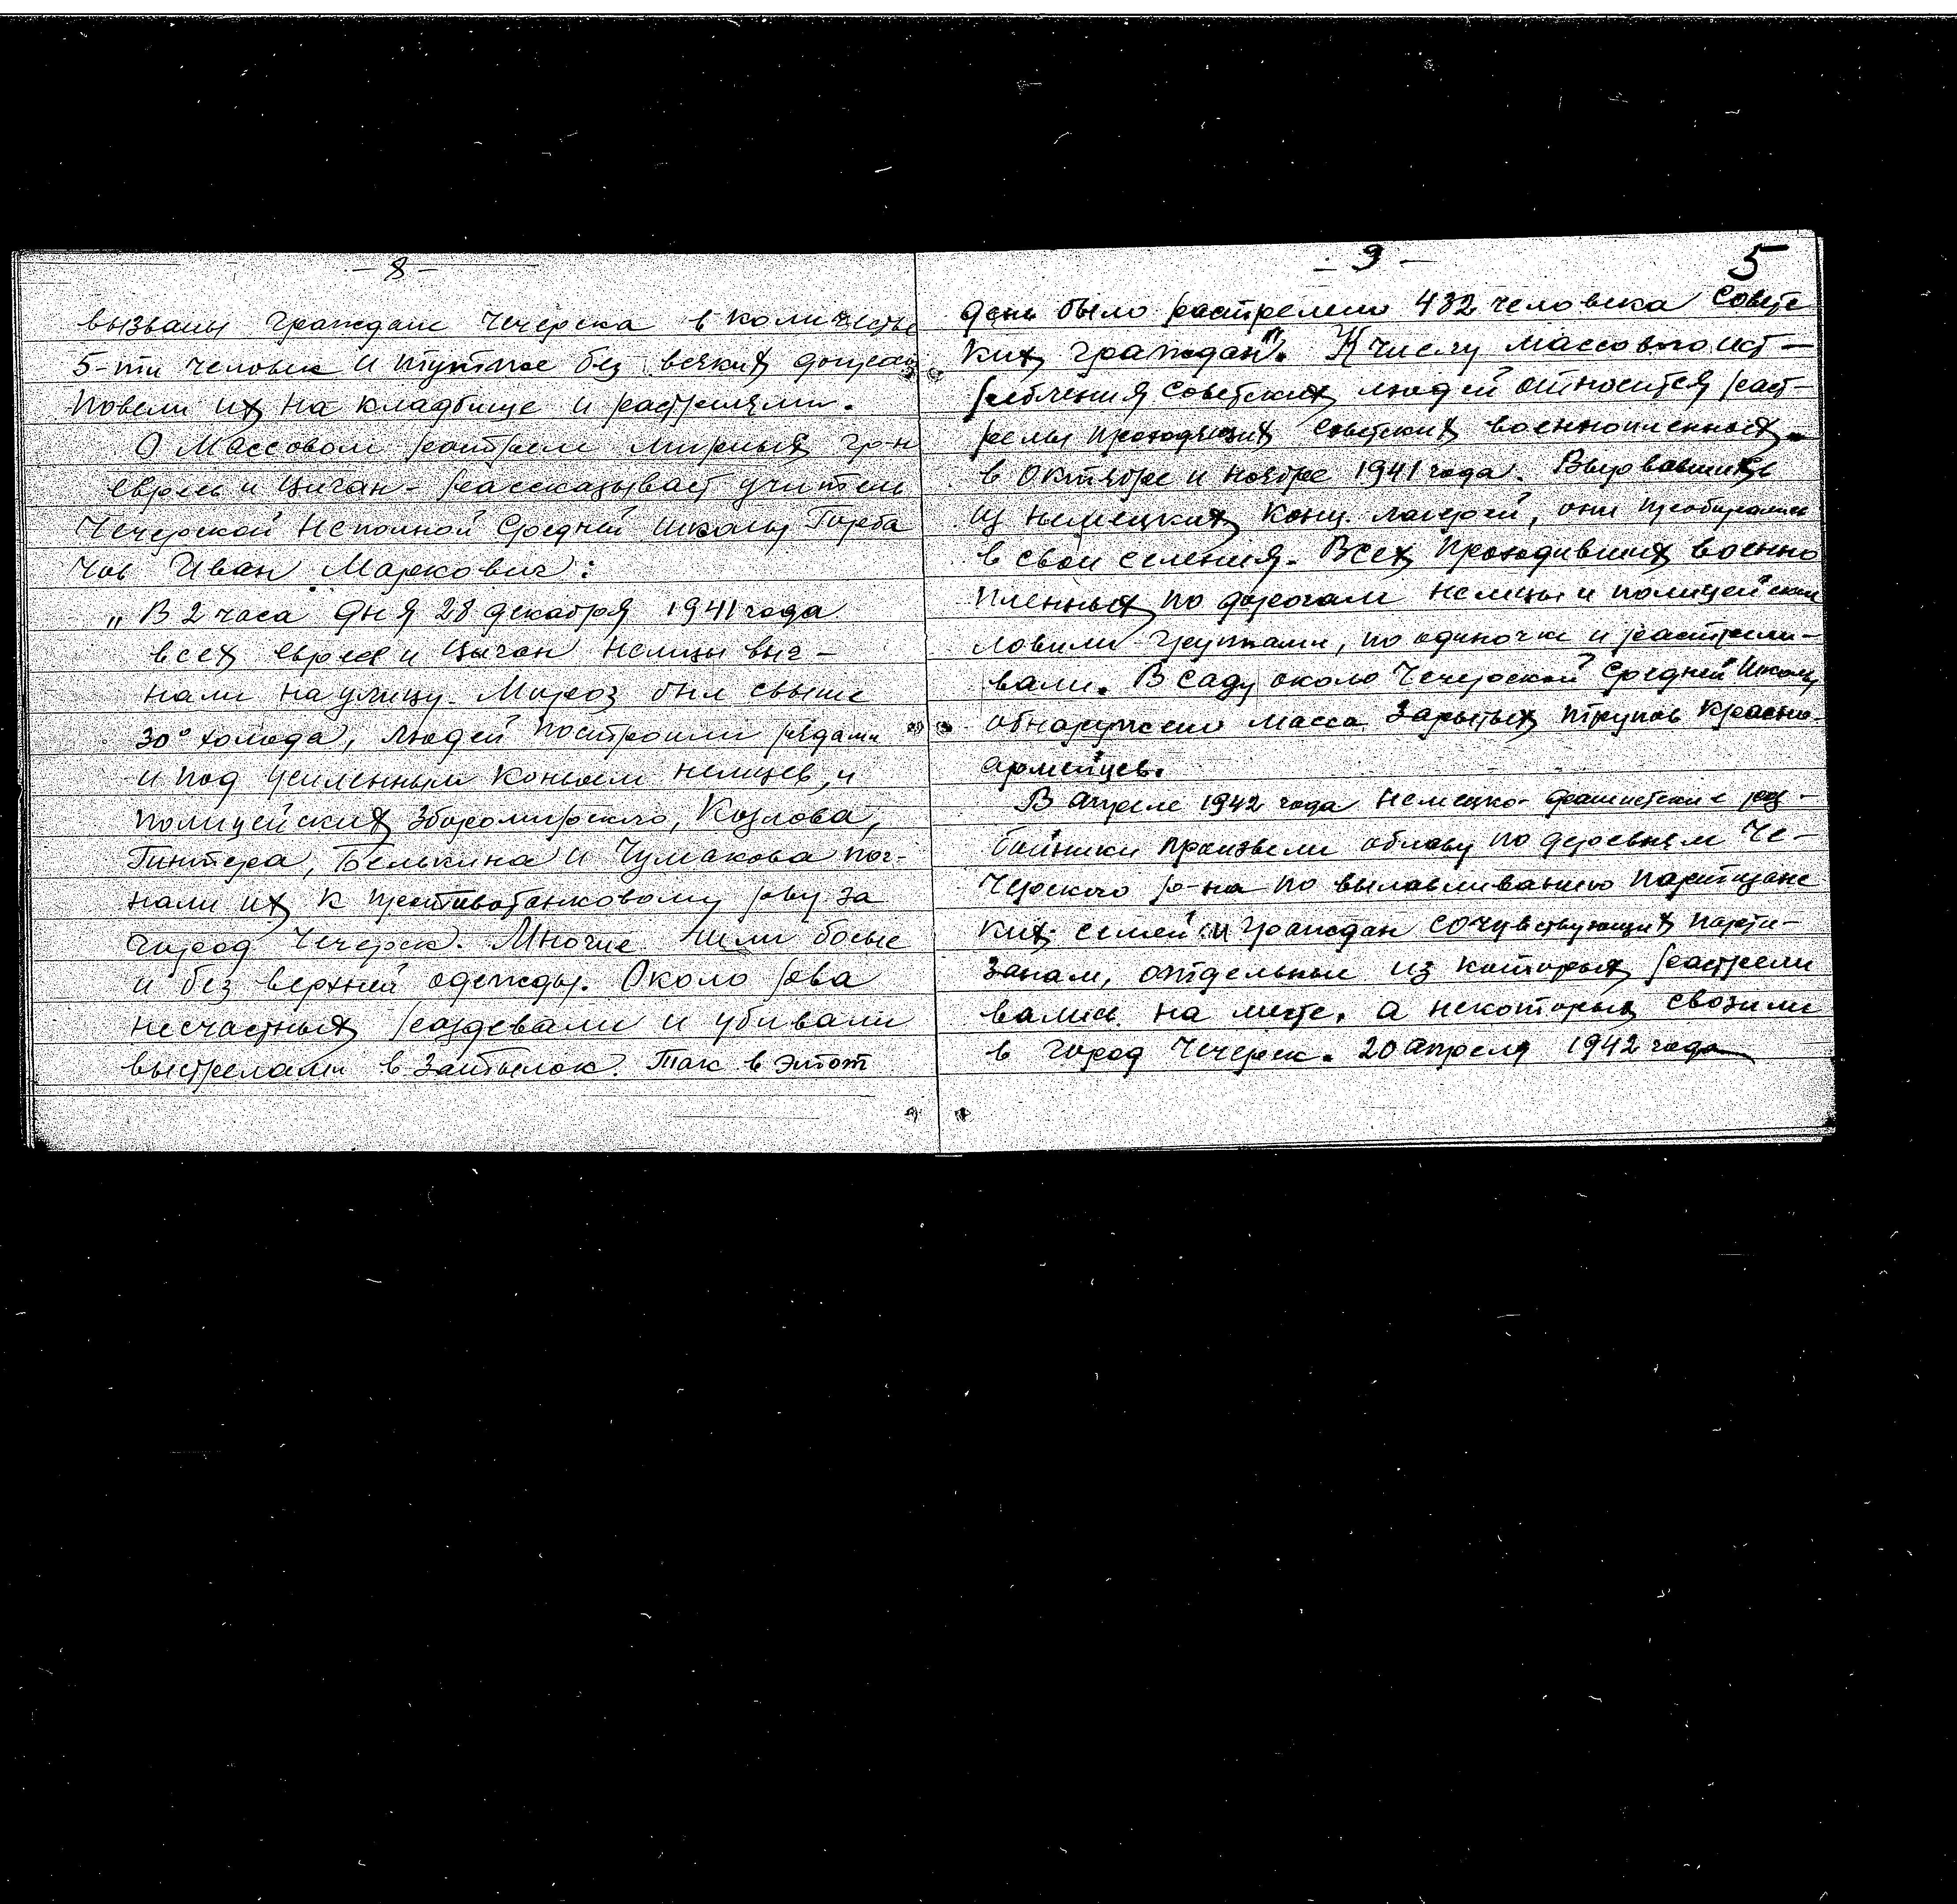 - 8 -
вызваны граждане Чечерска в количестве
5-ти человек и тут же без всяких допросов
повели их на кладбище и расстреляли.
О массовом расстреле мирных гр-н
евреев и циган - рассказывает учитель
Чечерской Неполной Средней Школы Горба
чов Иван Маркович:
„В 2 часа дня 28 декабря 1941 года
всех евреев и цыган немцы выг-
нали на улицу. Мороз был свыше
30° холода, людей построили рядами
и под усиленным конвоем немцев, и
полицейских Зборомирского, Козлова,
Гинтера, Белькина и Чумакова пог-
нали их к противотанковому рву за
город Чечерск. Многие шли босые
и без верхней одежды. Около рва
несчастных раздевали и убивали
выстрелами в затылок. Так в этот
- 9 -
5
день было растрелено 432 человека Советс
ких граждан". К числу массового ист-
ребления Советских людей относится раст-
релы проходящих советских военнопленных
в Октябре и ноябре 1941 года. Вырвавшись
из немецких конц. лагерей, они пробирались
в свои селения. Всех проходивших военно
пленных по дорогам немцы и полицейские
ловили группами, по одиночке и растрели-
вали. В саду около Чечерской Средней Школы
обнаружено масса зарытых трупов красно-
армейцев.
В апреле 1942 года немецко-фашистские раз-
бойники произвели облаву по деревням Че-
черского р-на по вылавливанию партизанс
ких семей и граждан сочувствующих парти-
занам, отдельные из которых растрели
вались на месте, а некоторых свозили
в город Чечерск. 20 апреля 1942 года